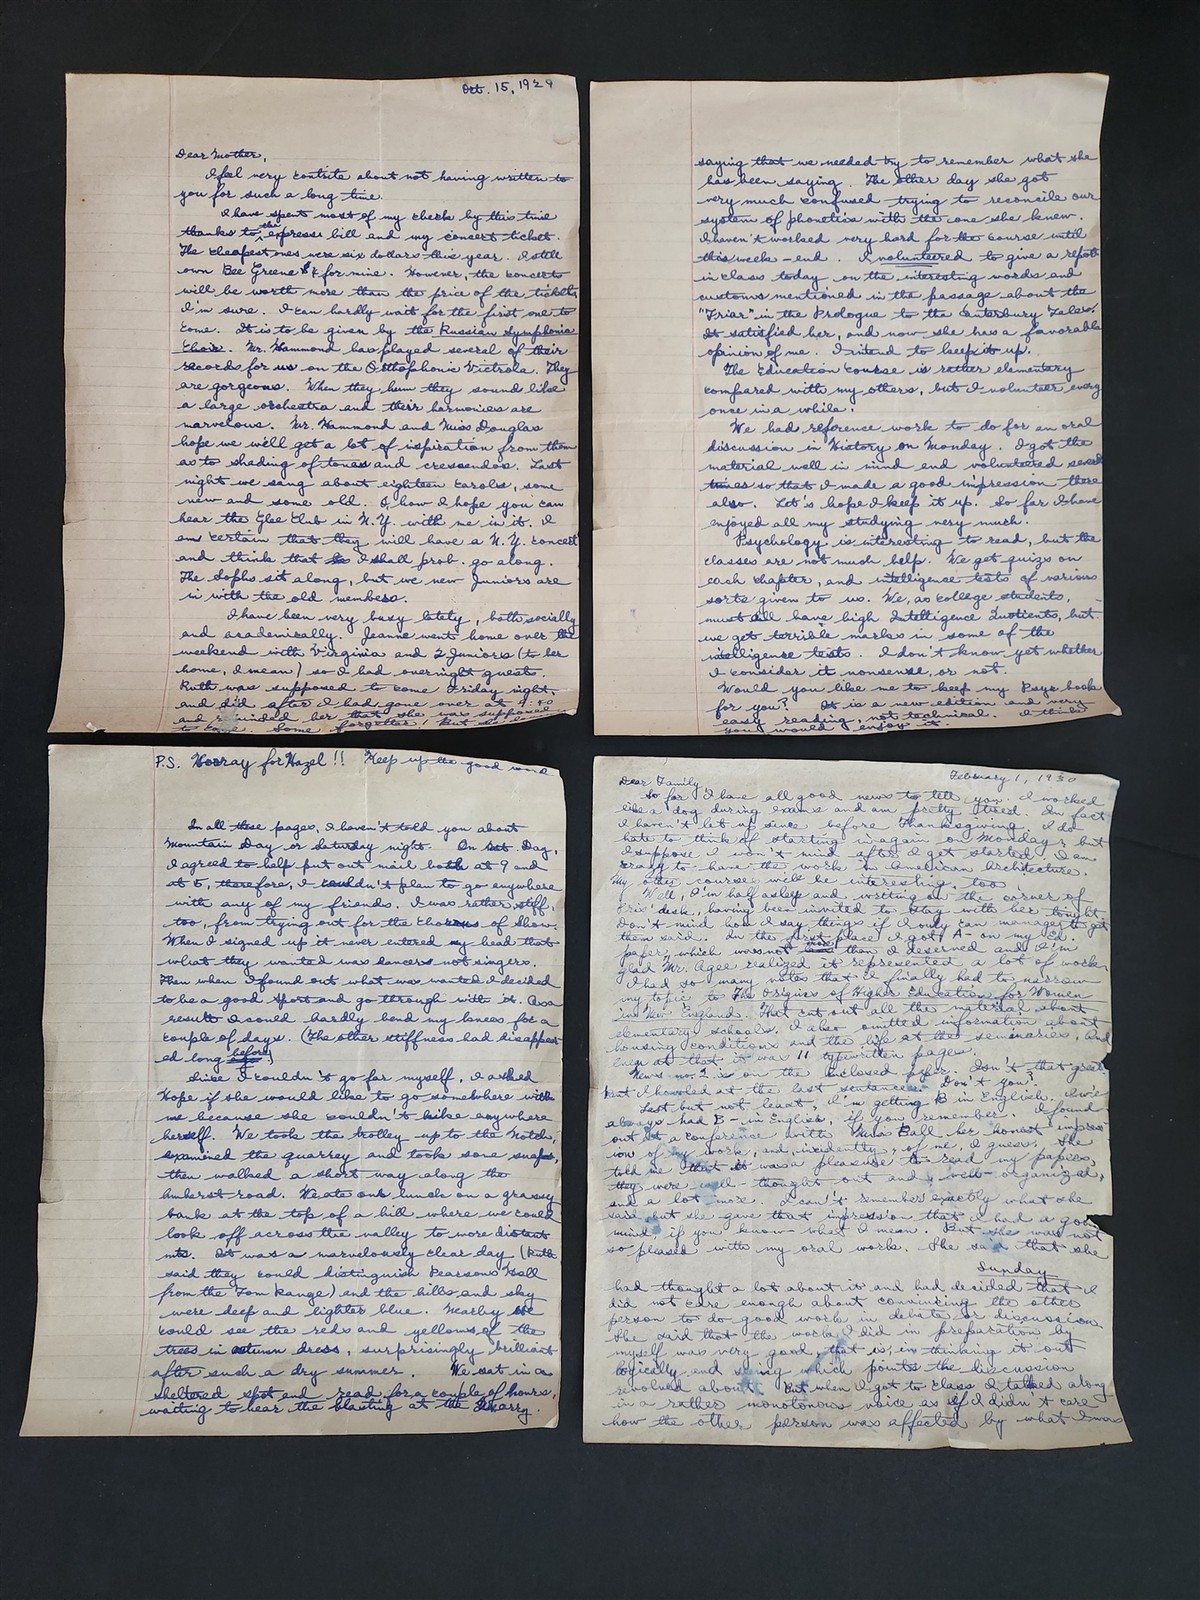 Oct. 15, 1929
Dear Mother,
I feel very contrite about not having written to
you for such a long time.
I have spent most of my check by this time
thanks to the express bill and my concert tickets.
The cheapest ones were six dollars this year. I still
own Bee Greene $4 for mine. However, the concerts
will be worth more than the price of the tickets
I'm sure. I can hardly wait for the first one to
come. It is to be given by the Russian Symphonic
Choir. Mr. Hammond has played several of their
records for us on the Orthophonic Victrola. They
are gorgeous. When they hum they sound like
a large orchestra and their harmonies are
marvelous. Mr. Hammond and Miss Douglas
hope we will get a lot of inspiration from them
as to shading of tones and crescendos. Last
night we sang about eighteen carols, some
new and some old. O, how I hope you can
hear the Glee Club in N.Y. with me in it. I
am certain that they will have a N.Y. concert
and think that I shall prob. go along.
The Sophs sit along, but we new Juniors are
in with the old members.
I have been very busy lately, both socially
and academically. Jeanne went home over the
weekend with Virginia and 2 Juniors (to her
home, I mean) so I had overnight guests.
Ruth was supposed to come Friday night,
and did after I had gone over at 9:40
and reminded her that she was supposed
to come. Some forgotten, but
saying that we needed try to remember what she
has been saying. The other day she got
very much confused trying to reconcile our
system of phonetics with the one she knew.
I haven't worked very hard for the course until
this week-end. I volunteered to give a report
in class today, on the interesting words and
customs mentioned in the passage about the
"Friar" in the Prologue to the Canterbury Tales.
It satisfied her, and now she has a favorable
opinion of me. I intend to keep it up.
The Education course is rather elementary
compared with my others, but I volunteer every
once in a while.
We had reference work to do for an oral
discussion in History on Monday. I got the
material well in mind and volunteered several
times so that I made a good impression there
also. Let's hope I keep it up. So far I have
enjoyed all my studying very much.
Psychology is interesting to read, but the
classes are not much help. We get quizs on
each chapter, and intelligence tests of various
sorts given to us. We, as college students,
must all have high Intelligence Quotients, but
we get terrible marks in some of the
intelligence tests. I don't know yet whether
I consider it nonsense, or not.
Would you like me to keep my Psyc book
for you? It is a new edition and very
easy reading, not technical. I think
you would enjoy it.
P.S. Hooray for Hazel!! Keep up the good work
In all these pages, I haven't told you about
Mountain Day or Saturday night. On Mt. Day,
I agreed to help put out mail both at 9 and
at 5, therefore, I couldn't plan to go anywhere
with any of my friends. I was rather stiff,
too, from trying out for the chorus of Show.
When I signed up it never entered my head that
what they wanted was dancers not singers.
Then when I found out what was wanted I decided
to be a good sport and go through with it. As a
result I could hardly bend my knees for a
couple of days. (The other stiffness had disappear-
ed long before)
Since I couldn't go far myself, I asked
Hope if she would like to go somewhere with
me because she couldn't hike anywhere
herself. We took the trolley up to the Notch,
examined the quarry and took some snaps,
then walked a short way along the
Amherst road. We ate our lunch on a grassy
bank at the top of a hill where we could
look off across the valley to more distant
mts. It was a marvelously clear day (Ruth
said they could distinguish Pearsons Hall
from the Tom Range) and the hills and sky
were deep and lighter blue. Nearby we
could see the reds and yellows of the
trees in autumn dress, surprisingly brilliant
after such a dry summer. We sat in a
sheltered spot and read for a couple of hours,
waiting to hear the blasting at the Quarry.
February 1, 1930
Dear Family,
So far I have all good news to tell you. I worked
like a dog during exams and am pretty tired. In fact
I haven't let up since before Thanksgiving. I do
hate to think of starting in again on Monday, but
I suppose I won't mind after I get started. I am
crazy to have the work in American Architecture.
My other course will be interesting, too.
Well, I'm half asleep and writing on the corner of
desk, having been invited to stay with her tonight.
Don't mind how I say things if I only can manage to get
them said. In the first place I got A- on my Ed.
paper, which was not more than I deserved and I'm
glad Mr. Agee realized it represented a lot of work.
I had so many notes that I finally had to narrow
my topic to The Origins of Higher Education for Women
in New England. That cut out all the material about
elementary schools. I also omitted information about
housing conditions and the life at the seminaries. And
even at that it was 11 typewritten pages.
News no. 2 is on the enclosed paper. Isn't that great
but I howled at the last sentence. Don't you?
Last but not least, I'm getting B in English. I've
always had B- in English, if you remember. I found
out at a conference with Miss Ball her honest impress-
ion of my work, and, incidently, of me, I guess. She
told me that it was a pleasure to read my papers,
they were well-thought out and well-organized,
and a lot more. I can't remember exactly what she
said but she gave that impression that I had a good
mind, if you know what I mean. But she was not
so pleased with my oral work. She said that she
Sunday
had thought a lot about it and had decided that I
did not care enough about convincing the other
person to do good work in debate or discussion.
She said that the work I did in preparation by
myself was very good, that is, in thinking it out
logically and seeing which points the discussion
revolved about. But when I got to class I talked along
in a rather monotonous voice as if I didn't care
how the other person was affected by what I was